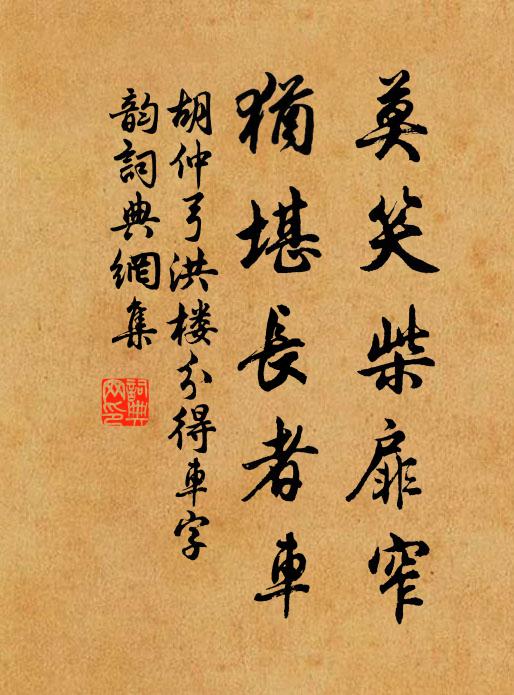 莫笑柴扉窄
猶堪長者車
胡仲弓洪楼分得車字
韵詞典網集
詞典網印